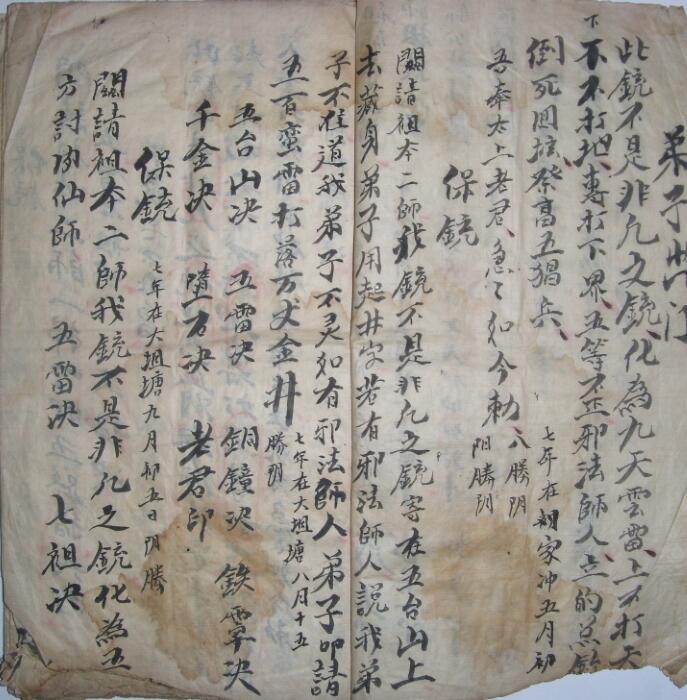 弟子
此銃不是非凡之銃化為九天雲雷上不打天
下不打地專打下界五等不正邪法師人立的
倒死回壇祭高五猖兵
吾奉太上老君急々如今勅 八勝阴 阳勝阴 七年在胡家冲五月初
保銃
闗請祖本二師我銃不是非凡之銃寄在五台山上
去藏身弟子用起井字若有邪法師人説我弟
子不准道我弟子不灵如有邪法師人弟子叩請
五百蛮雷打落万丈金井 勝阴 七年在大坦塘八月十五
五台山决 五雷决 銅鐘决 鉄罩决
千金决 墮石决 老君印
保銃 七年在大坦塘九月初五日阴勝
闗請祖本二師我銃不是非凡之銃化為五
方討仙師 五雷决 七祖决